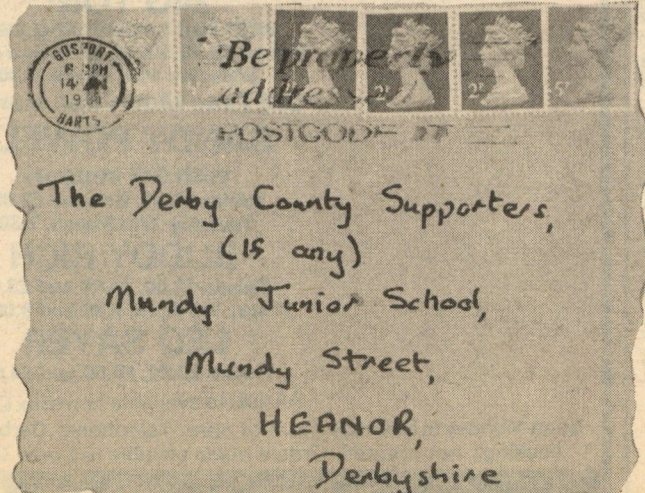 GOSPORT
PM
14
1981
HANTS
Be properly
addressed
POSTCODE IT
2P 2P 2P 5P
The Derby County Supporters,
(IS any)
Mundy Junior School,
Mundy Street,
HEANOR,
Derbyshire